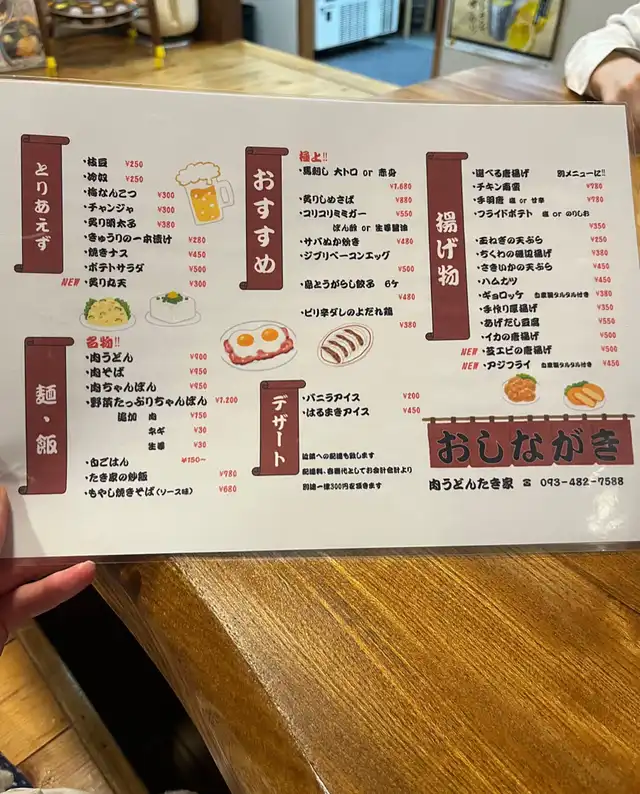 とりあえず
・枝豆 ¥250
・冷奴 ¥250
・梅なんこつ ¥300
・チャンジャ ¥300
・炙り明太子 ¥380
・きゅうりの一本漬け ¥280
・焼きナス ¥450
・ポテトサラダ ¥500
NEW ・炙り丸天 ¥300
麺・飯
名物!!
・肉うどん ¥900
・肉そば ¥950
・肉ちゃんぽん ¥950
・野菜たっぷりちゃんぽん ¥1,200
追加 肉 ¥750
ネギ ¥30
生姜 ¥30
・白ごはん ¥150～
・たき家の炒飯 ¥780
・もやし焼きそば(ソース味) ¥680
おすすめ
極上!!
・馬刺し 大トロ or 赤身
¥1,680
・炙りしめさば ¥880
・コリコリミミガー ¥550
ぽん酢 or 生姜醤油
・サバぬか炊き ¥480
・ジブリベーコンエッグ
¥500
・島とうがらし餃子 6ケ
¥480
・ピリ辛ダレのよだれ鶏
¥380
デザート
・バニラアイス ¥200
・はるまきアイス ¥450
近隣への配達も致します
配達料、容器代としてお会計合計より
別途一律300円を頂きます
揚げ物
・選べる唐揚げ 別メニューに!!
・チキン南蛮 ¥780
・手羽唐 塩 or 甘辛 ¥780
・フライドポテト 塩 or のりしお
¥350
・玉ねぎの天ぷら ¥250
・ちくわの磯辺揚げ ¥380
・さきいかの天ぷら ¥450
・ハムカツ ¥450
・ギョロッケ 自家製タルタル付き ¥380
・手作り厚揚げ ¥350
・あげだし豆腐 ¥550
・イカの唐揚げ ¥500
NEW ・芝エビの唐揚げ ¥500
NEW ・アジフライ 自家製タルタル付き ¥450
おしながき
肉うどんたき家 ☎ 093-482-7588